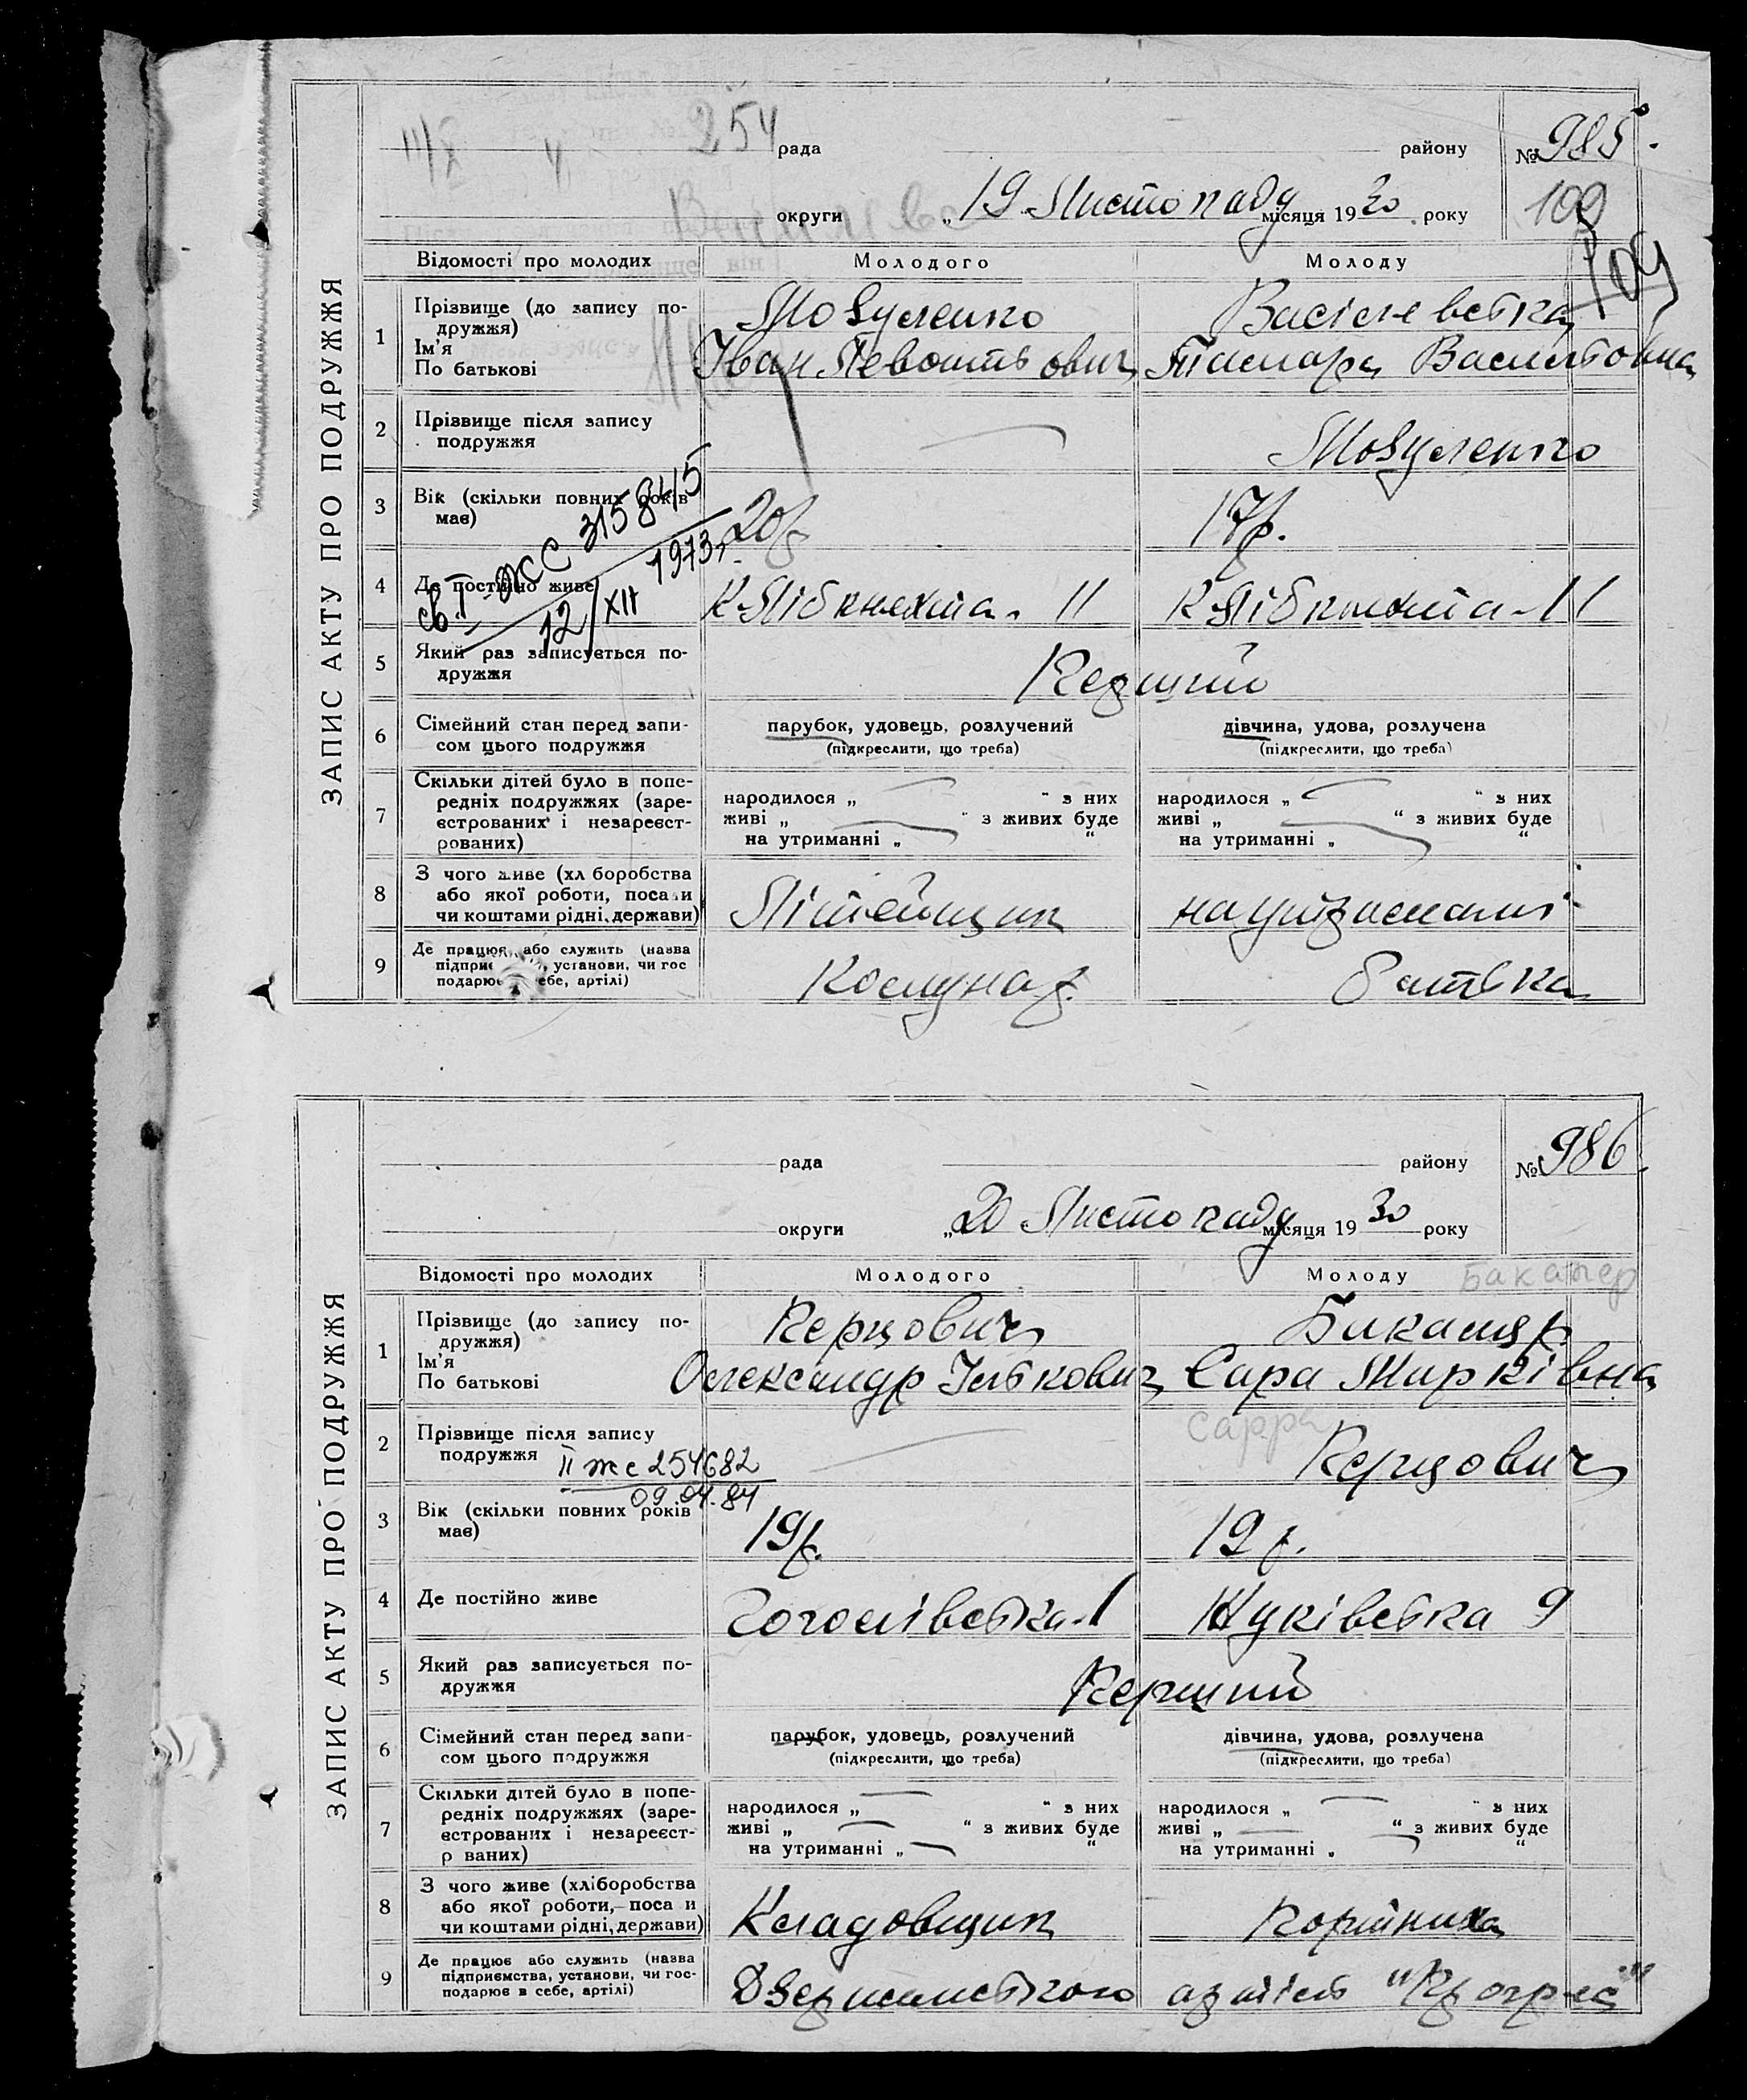 ЗАПИС АКТУ ПРО ПОДРУЖЖЯ
254 рада району № 985
округи „19 Листопаду місяця 1930 року 109
109
Відомості про молодих Молодого Молоду
1 Прізвище (до запису подружжя)
Ім'я
По батькові
Іван Тамара
2 Прізвище після запису подружжя
3 Вік (скільки повних років має) 20 р. 17 р.
св. І-ЖС 315845
12/XII 1973 г.
4 Де постійно живе К-Лібкнехта. 11 К-Лібкнехта-11
5 Який раз записується подружжя Перший
6 Сімейний стан перед записом цього подружжя
парубок, удовець, розлучений
(підкреслити, що треба)
дівчина, удова, розлучена
(підкреслити, що треба)
7 Скільки дітей було в попередніх подружжях (зареєстрованих і незареєстрованих)
народилося „ “ з них
живі „ “ з живих буде
на утриманні „ “
народилося „ “ з них
живі „ “ з живих буде
на утриманні „ “
8 З чого живе (хл боробства
або якої роботи, поса и
чи коштами рідні, держави)
Літейщик на утриманні
9 Де працює або служить (назва
підпри , установи, чи гос
подарює ебе, артілі)
Комунар. батька
ЗАПИС АКТУ ПРО ПОДРУЖЖЯ
рада району № 986.
округи „20 Листопаду місяця 1930 року
Відомості про молодих Молодого Молоду Бакалер
1 Прізвище (до запису подружжя)
Ім'я
По батькові
Перцович
Олександр Іцькович Сара Мирківна
Сарра
2 Прізвище після запису подружжя Перцович
ІІ жс 254682
09.04.84
3 Вік (скільки повних років має) 19 р. 19 р.
4 Де постійно живе Гоголівська-1 Жуківська 9
5 Який раз записується подружжя Перший
6 Сімейний стан перед записом цього подружжя
парубок, удовець, розлучений
(підкреслити, що треба)
дівчина, удова, розлучена
(підкреслити, що треба)
7 Скільки дітей було в попередніх подружжях (зареєстрованих і незареєстр ваних)
народилося „ “ з них
живі „ “ з живих буде
на утриманні „ “
народилося „ “ з них
живі „ “ з живих буде
на утриманні „ “
8 З чого живе (хліборобства
або якої роботи, поса и
чи коштами рідні, держави)
Кладовщик
9 Де працює або служить (назва
підприємства, установи, чи господарює в себе, артілі)
Дзержинського артіль